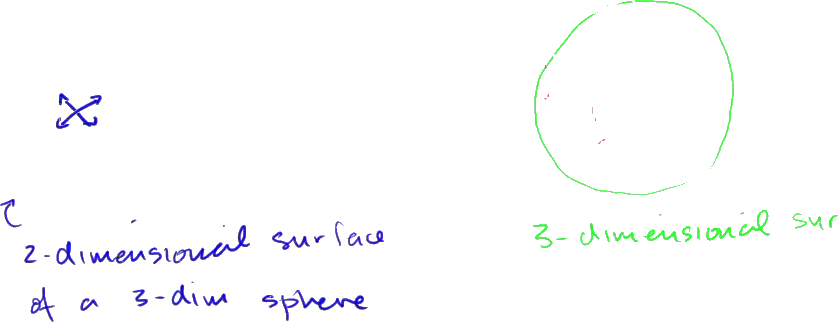 2-dimensional surface
of a 3-dim sphere
3-dimensional sur